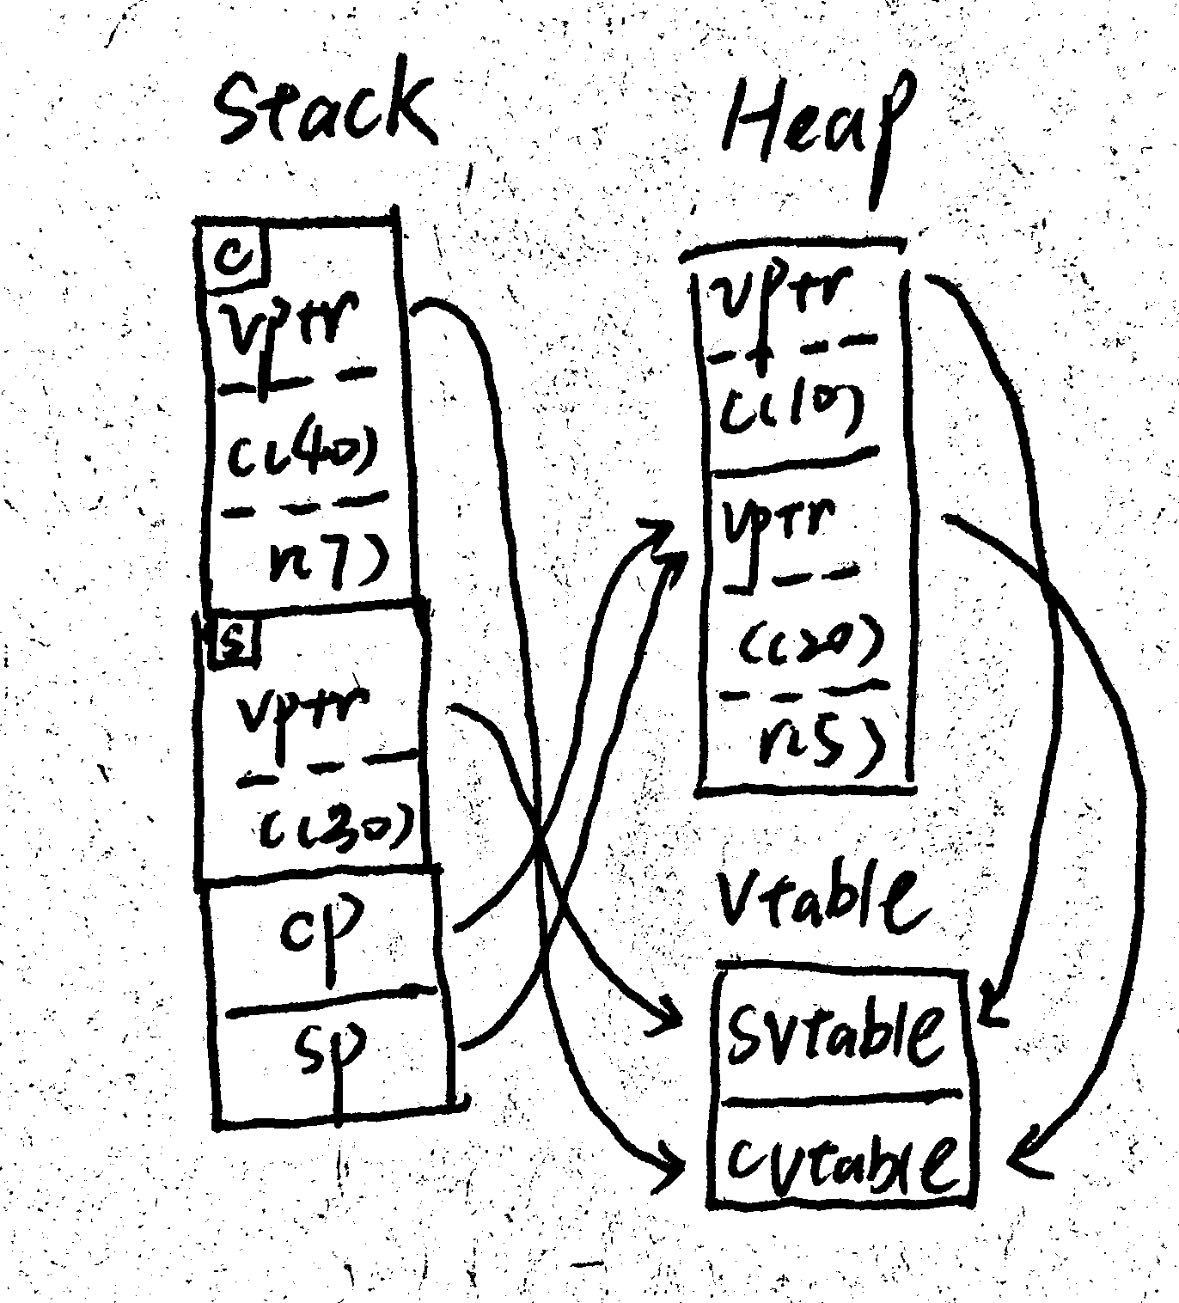 Stack
c
vptr
c(40)
r(7)
s
vptr
c(30)
cp
sp
Heap
vptr
c(10)
vptr
c(20)
r(5)
vtable
svtable
cvtable